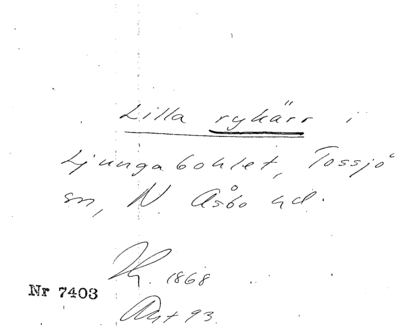 Lilla rykärr i
Ljungabohlet, Tossjö
sn, N. Åsbo hd.
Hg. 1868
Nr 7403
Akt 93